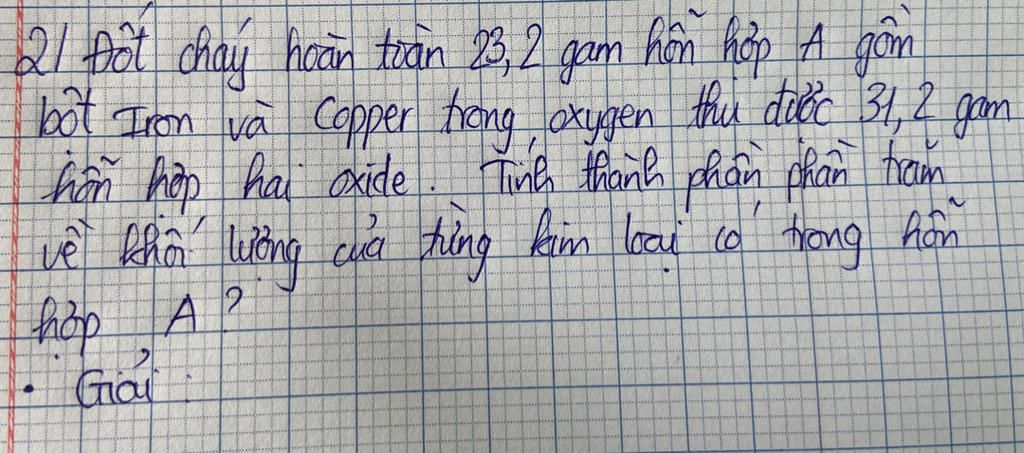 2/ Đốt cháy hoàn toàn 23,2 gam hỗn hợp A gồm
bột Iron và Copper trong oxygen thu được 31,2 gam
hỗn hợp hai oxide. Tính thành phần phần trăm
về khối lượng của từng kim loại có trong hỗn
hợp A?
• Giải: